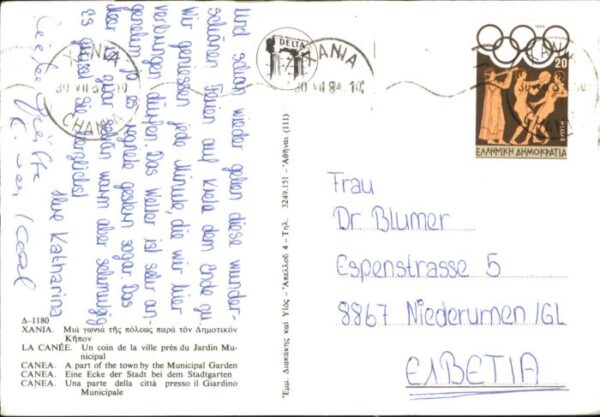 Und schon wieder gehen diese wunder-
schönen Ferien auf Kreta dem Ende zu
Wir geniessen jede Minute, die wir hier
verbringen dürfen. Das Wetter ist sehr an-
genehm, ja es regnete gestern sogar. Das
Meer ist zwar schön warm aber schmutzig
es grüsst Sie herzlichst
Ihre Katharina
Liebe Grüsse
ΧΑΝΙΑ
30 VII 84
CHANIA
DELTA
ΧΑΝΙΑ
30 VII 84 10
1984
20
ΕΛΛΗΝΙΚΗ ΔΗΜΟΚΡΑΤΙΑ
Frau
Dr. Blumer
Espenstrasse 5
8867 Niederurnen/GL
ΕΛΒΕΤΙΑ
Δ-1180
ΧΑΝΙΑ. Μιά γωνιά τῆς πόλεως παρά τόν Δημοτικόν
Κῆπον
LA CANÉE. Un coin de la ville près du Jardin Mu-
nicipal
CANEA. A part of the town by the Municipal Garden
CANEA. Eine Ecke der Stadt bei dem Stadtgarten
CANEA. Una parte della città presso il Giardino
Municipale
Ἐμμ. Διακάκης καί Υἱός - Ἀπελλοῦ 4 - Τηλ. 3249.151 - Ἀθῆναι (111)